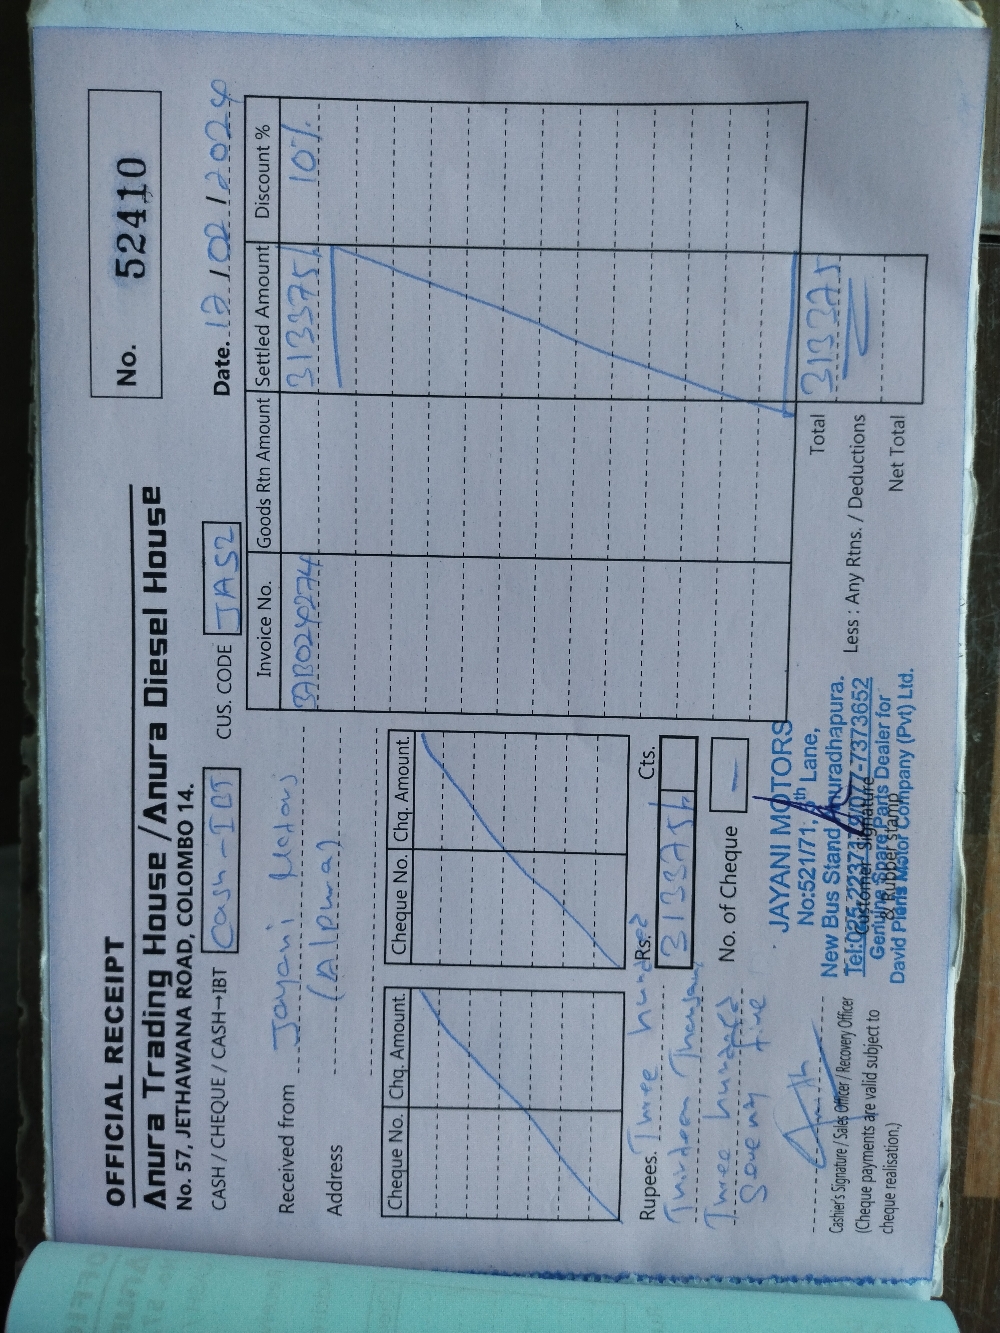 OFFICIAL RECEIPT
Anura Trading House / Anura Diesel House
No. 57, JETHAWANA ROAD, COLOMBO 14.
No. 52410
CASH / CHEQUE / CASH→IBT Cash-IBT CUS. CODE JAS2 Date. 12/02/2024
Received from Jayani Motors
Address (Alpwa)
Cheque No. Chq. Amount. Cheque No. Chq. Amount.
Invoice No. Goods Rtn Amount Settled Amount Discount %
313375/ 10%
Total 313375
Less : Any Rtns. / Deductions
Net Total
Rupees. Three hundred
Thirteen Thousand
Three hundred
Seventy five
Rs. Cts.
313375/
No. of Cheque —
Cashier's Signature / Sales Officer / Recovery Officer
(Cheque payments are valid subject to
cheque realisation.)
JAYANI MOTORS
No:521/71, th Lane,
New Bus Stand, Anuradhapura.
Tel:025-2237 077-7373652
Genuine Spare Parts Dealer for
David Pieris Motor Company (Pvt) Ltd.
Customer Signature
& Rubber stamp